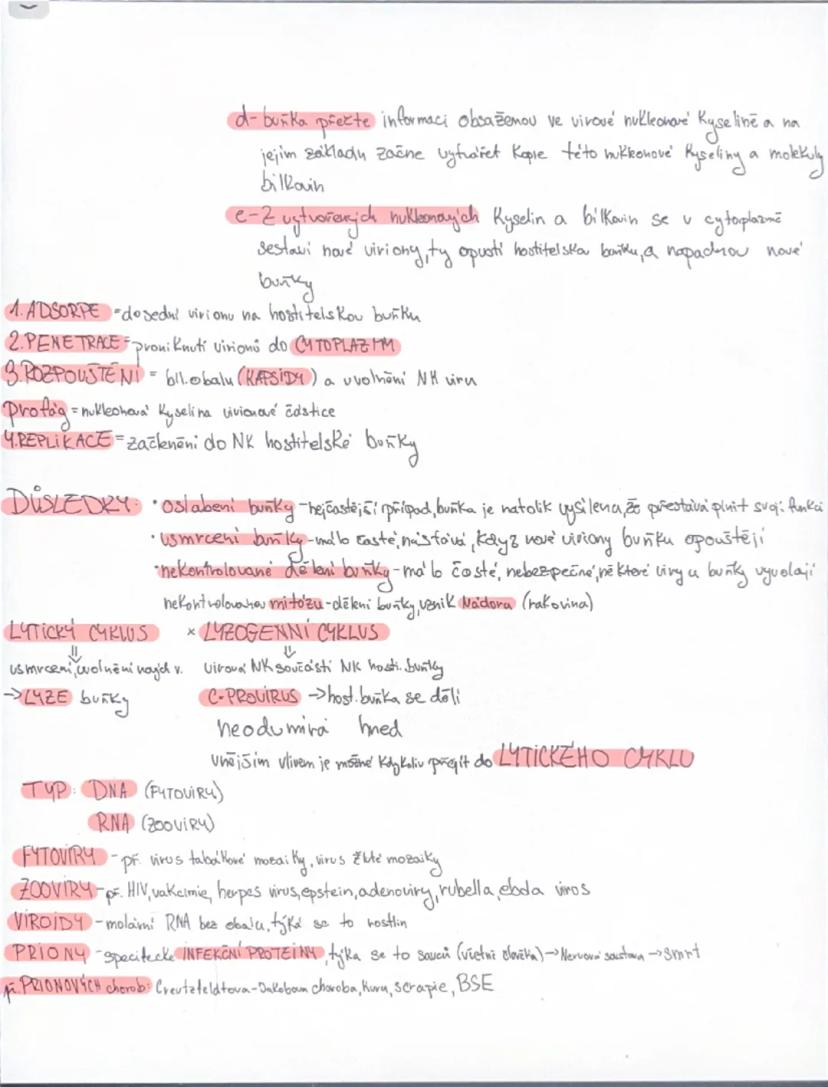 d- buňka přečte informaci obsaženou ve virové nukleonové kyselině a na
jejím základu začne vytvářet kopie této nukleonové kyseliny a molekuly
bílkovin
e- Z vytvořených nukleonových kyselin a bílkovin se v cytoplazmě
sestaví nové viriony, ty opustí hostitelskou buňku, a napadnou nové
buňky
1. ADSORPE = dosední virionu na hostitelskou buňku
2. PENETRACE = proniknutí virionů do CYTOPLAZMY
3. ROZPOUŠTĚNÍ = bíl. obalu (KAPSIDY) a uvolnění NK viru
Profág = nukleonová kyselina virionové částice
4. REPLIKACE = začlenění do NK hostitelské buňky
DŮSLEDKY: • Oslabení buňky - nejčastější případ, buňka je natolik vysílena, že přestává plnit svoji funkci
• usmrcení buňky - málo časté, nastává, když nové viriony buňku opouštějí
• nekontrolované dělení buňky - málo časté, nebezpečné, některé viry u buňky vyvolají
nekontrolovanou mitózu - dělení buňky, vznik Nádoru (rakovina)
LYTICKÝ CYKLUS × LYZOGENNÍ CYKLUS
⇓ ⇓
usmrcení, uvolnění nových v. virová NK součástí NK hosti. buňky
→ LYZE buňky C-PROVIRUS → host. buňka se dělí
neodumírá hned
vnějším vlivem je možné kdykoliv přejít do LYTICKÉHO CYKLU
TYP: DNA (FYTOVIRY)
RNA (ZOOVIRY)
FYTOVIRY - př. virus tabákové mozaiky, virus žluté mozaiky
ZOOVIRY - př. HIV, vakcinie, herpes virus, epstein, adenoviry, rubella, ebola virus
VIROIDY - molární RNA bez obalu, týká se to rostlin
PRIONY - specifecke INFEKČNÍ PROTEINY, týka se to savců (včetně člověka) → Nervová soustava → smrt
př. PRIONOVÝCH chorob: Creutzfeldtova-Jakobova choroba, kuru, scrapie, BSE